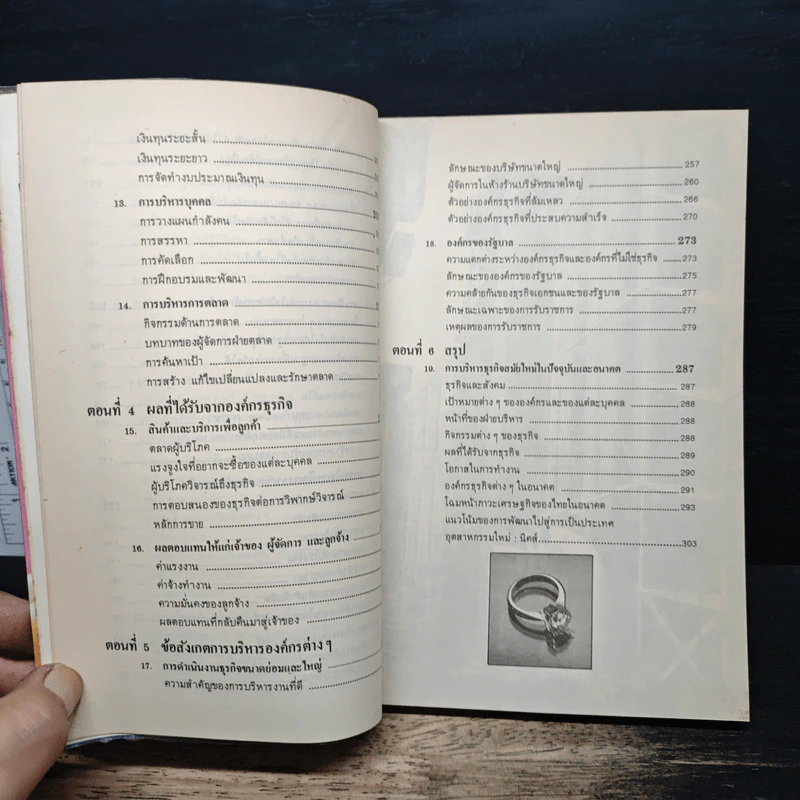 เงินทุนระยะสั้น
เงินทุนระยะยาว
การจัดทำงบประมาณเงินทุน
13. การบริหารบุคคล
การวางแผนกำลังคน
การสรรหา
การคัดเลือก
การฝึกอบรมและพัฒนา
14. การบริหารการตลาด
กิจกรรมด้านการตลาด
บทบาทของผู้จัดการฝ่ายตลาด
การค้นหาเป้า
การสร้าง แก้ไขเปลี่ยนแปลงและรักษาตลาด
ตอนที่ 4 ผลที่ได้รับจากองค์กรธุรกิจ
15. สินค้าและบริการเพื่อลูกค้า
ตลาดผู้บริโภค
แรงจูงใจที่อยากจะซื้อของแต่ละบุคคล
ผู้บริโภควิจารณ์ถึงธุรกิจ
การตอบสนองของธุรกิจต่อการวิพากษ์วิจารณ์
หลักการขาย
16. ผลตอบแทนให้แก่เจ้าของ ผู้จัดการ และลูกจ้าง
ค่าแรงงาน
ค่าจ้างทำงาน
ความมั่นคงของลูกจ้าง
ผลตอบแทนที่กลับคืนมาสู่เจ้าของ
ตอนที่ 5 ข้อสังเกตการบริหารองค์กรต่าง ๆ
17. การดำเนินงานธุรกิจขนาดย่อมและใหญ่
ความสำคัญของการบริหารงานที่ดี
ลักษณะของบริษัทขนาดใหญ่ 257
ผู้จัดการในห้างร้านบริษัทขนาดใหญ่ 260
ตัวอย่างองค์กรธุรกิจที่ล้มเหลว 266
ตัวอย่างองค์กรธุรกิจที่ประสบความสำเร็จ 270
18. องค์กรของรัฐบาล 273
ความแตกต่างระหว่างองค์กรธุรกิจและองค์กรที่ไม่ใช่ธุรกิจ 273
ลักษณะขององค์กรของรัฐบาล 275
ความคล้ายกันของธุรกิจเอกชนและของรัฐบาล 277
ลักษณะเฉพาะของการรับราชการ 277
เหตุผลของการรับราชการ 279
ตอนที่ 6 สรุป
19. การบริหารธุรกิจสมัยใหม่ในปัจจุบันและอนาคต 287
ธุรกิจและสังคม 287
เป้าหมายต่าง ๆ ขององค์กรและของแต่ละบุคคล 288
หน้าที่ของฝ่ายบริหาร 288
กิจกรรมต่าง ๆ ของธุรกิจ 288
ผลที่ได้รับจากธุรกิจ 289
โอกาสในการทำงาน 290
องค์กรธุรกิจต่าง ๆ ในอนาคต 291
โฉมหน้าภาวะเศรษฐกิจของไทยในอนาคต 293
แนวโน้มของการพัฒนาไปสู่การเป็นประเทศ
อุตสาหกรรมใหม่ : นิคส์ 303